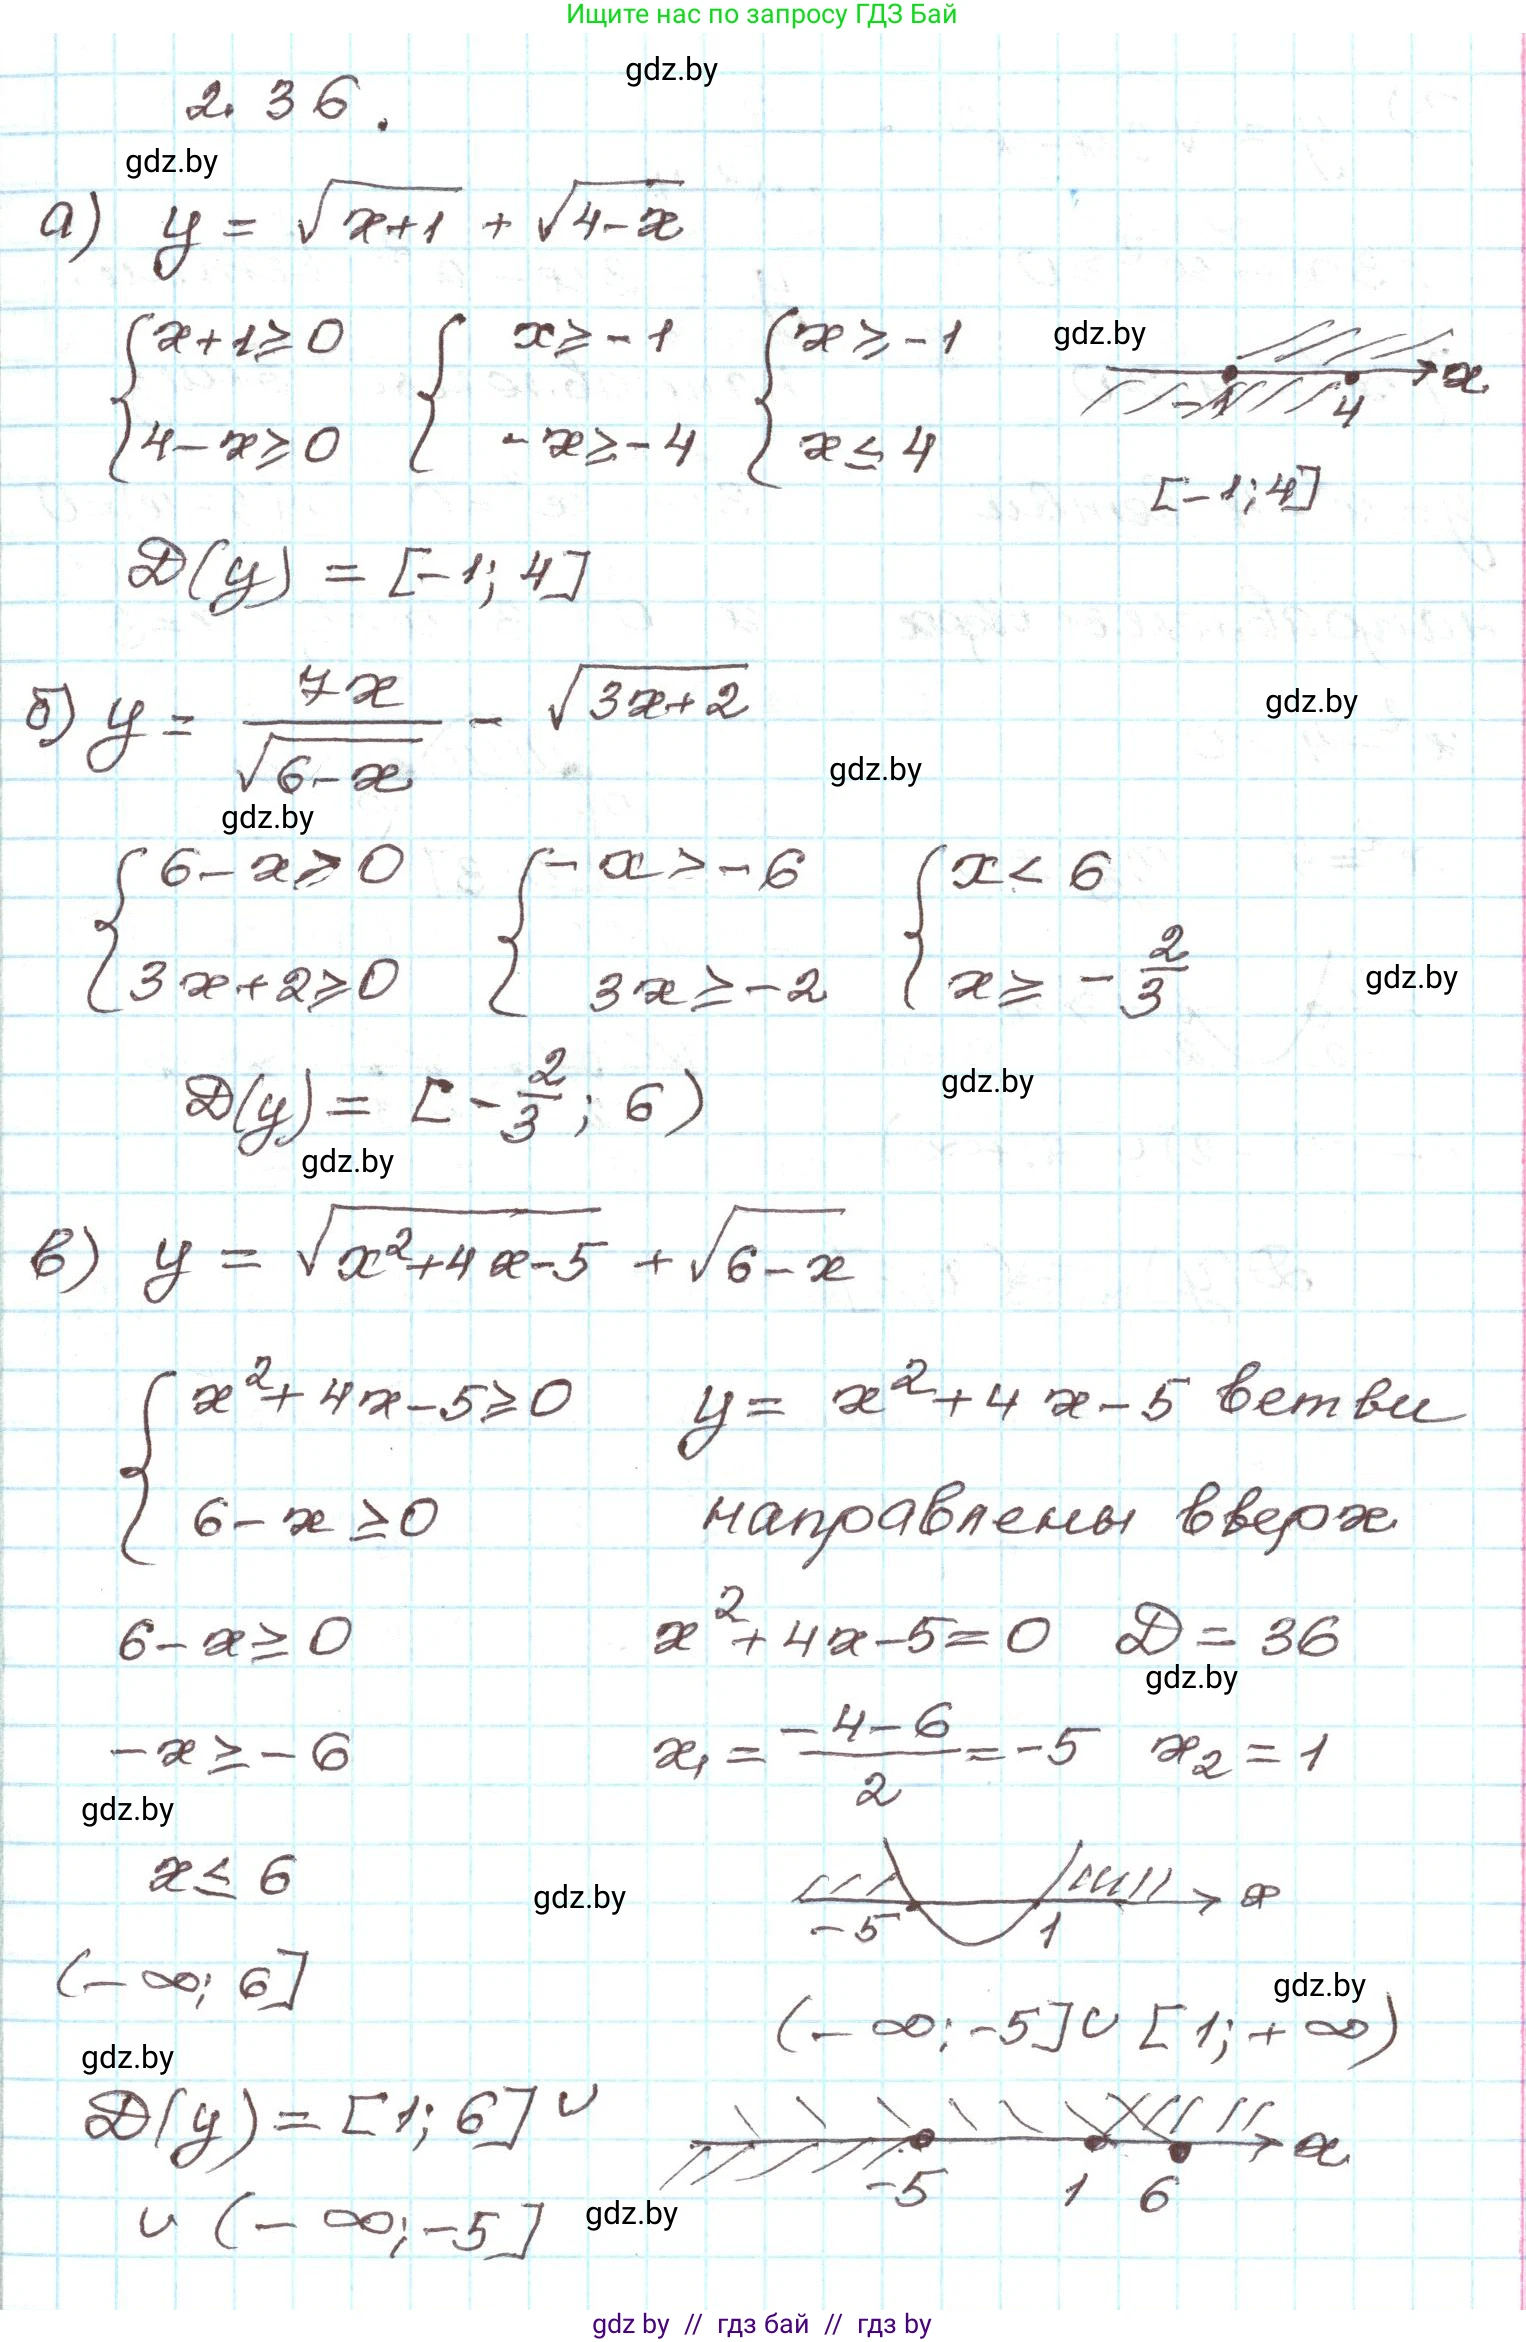 Ищите нас по запросу ГДЗ Бай
gdz.by
2.36.
gdz.by
а) y = √(x+1) + √(4-x)
{x+1≥0 { x≥-1 {x≥-1 gdz.by x
4-x≥0 -x≥-4 x≤4 -1 4
[-1;4]
D(y) = [-1;4]
б) y = 7x/√(6-x) - √(3x+2) gdz.by
gdz.by
gdz.by
{6-x>0 {-x>-6 {x<6
3x+2≥0 3x≥-2 x≥-2/3 gdz.by
D(y) = [-2/3; 6) gdz.by
gdz.by
в) y = √(x²+4x-5) + √(6-x)
{x²+4x-5≥0 y = x²+4x-5 ветви
6-x≥0 направлены вверх
6-x≥0 x²+4x-5=0 D=36
gdz.by
-x≥-6 x₁ = (-4-6)/2 = -5 x₂ = 1
gdz.by
x≤6 gdz.by -5 1 x
(-∞; 6] gdz.by
(-∞;-5]∪[1;+∞)
gdz.by
D(y) = [1;6]∪ x
-5 1 6
∪ (-∞;-5] gdz.by
gdz by // гдз бай // гдз by